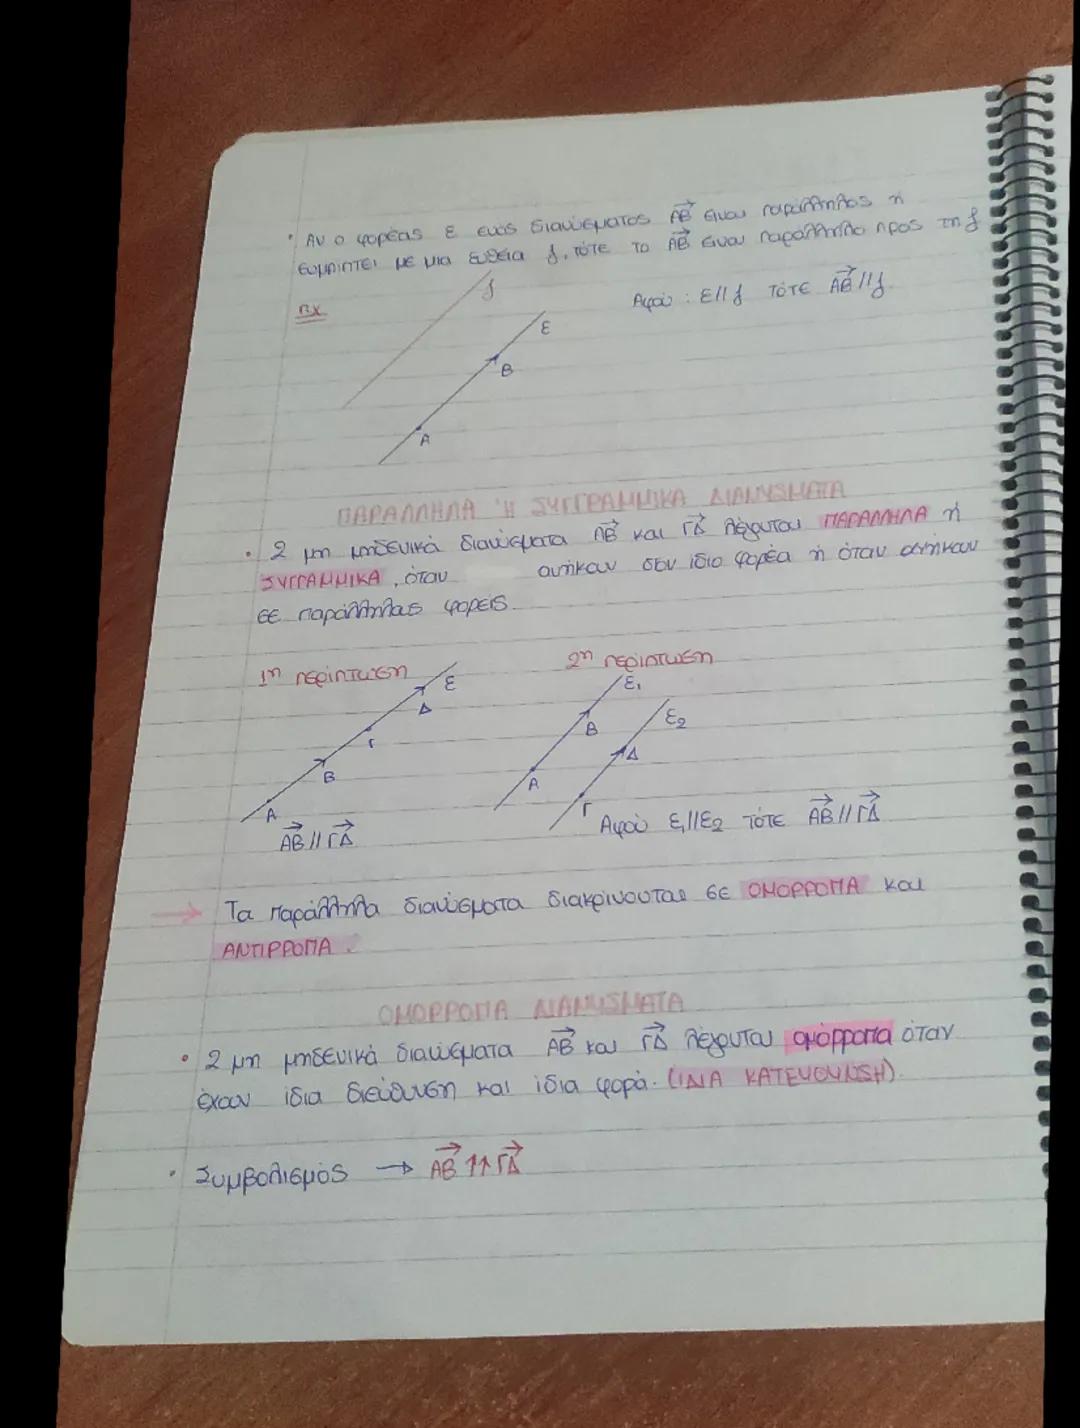 • Αν ο φορέας ε ενός διανύσματος ΑΒ είναι παράλληλος ή
συμπίπτει με μια ευθεία ζ, τότε το ΑΒ είναι παράλληλο προς τη ζ
πχ
ζ
Αφού : ε//ζ τότε ΑΒ//ζ.
ε
Β
Α
ΠΑΡΑΛΛΗΛΑ Ή ΣΥΓΓΡΑΜΜΙΚΑ ΔΙΑΝΥΣΜΑΤΑ
• 2 μη μηδενικά διανύσματα ΑΒ και ΓΔ λέγονται ΠΑΡΑΛΛΗΛΑ ή
ΣΥΓΓΡΑΜΜΙΚΑ, όταν ανήκουν σον ίδιο φορέα ή όταν ανήκουν
σε παράλληλους φορείς.
1η περίπτωση 2η περίπτωση
ε ε₁
Δ Β ε₂
Γ Δ
Β Α
Α Γ
ΑΒ//ΓΔ Αφού ε₁//ε₂ τότε ΑΒ//ΓΔ
→ Τα παράλληλα διανύσματα διακρίνονται σε ΟΜΟΡΡΟΠΑ και
ΑΝΤΙΡΡΟΠΑ.
ΟΜΟΡΡΟΠΑ ΔΙΑΝΥΣΜΑΤΑ
• 2 μη μηδενικά διανύσματα ΑΒ και ΓΔ λέγονται ομόρροπα όταν
έχουν ίδια διεύθυνση και ίδια φορά. (ΙΔΙΑ ΚΑΤΕΥΘΥΝΣΗ).
• Συμβολισμός → ΑΒ ↑↑ ΓΔ